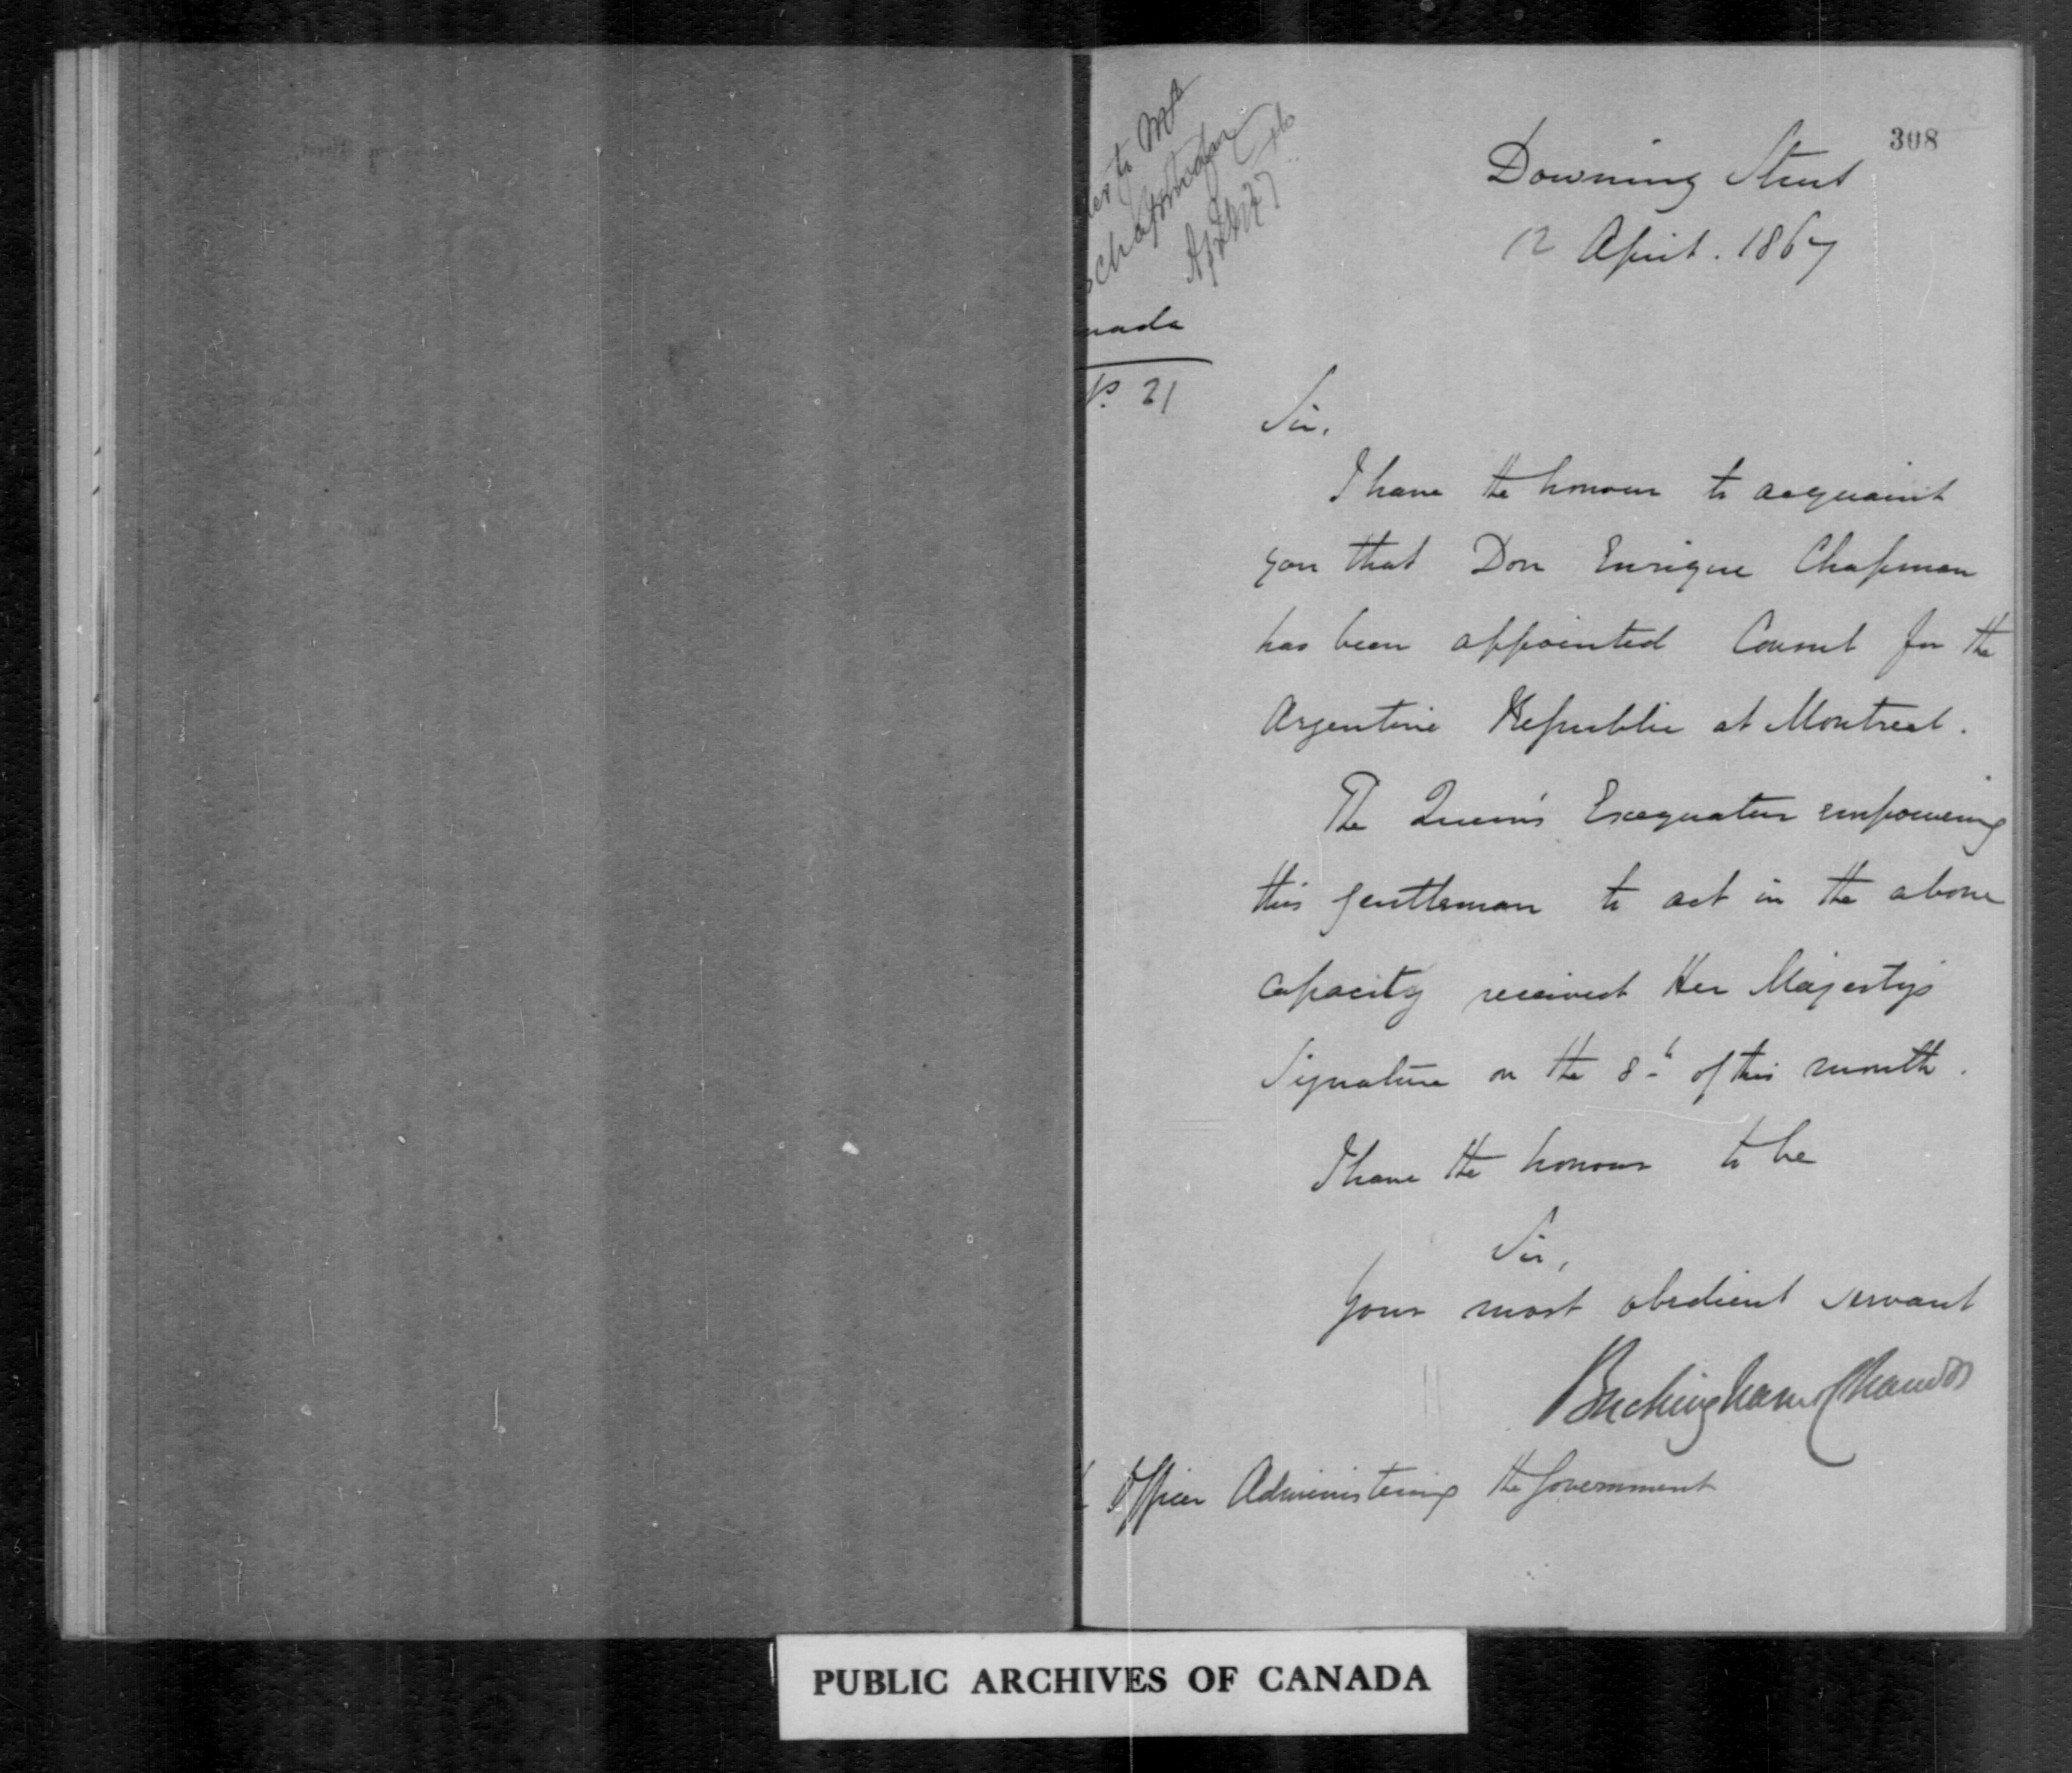 308
Downing Street
12 April. 1867
to Mr
Chapman
nada
No. 21
Sir,
I have the honour to acquaint
you that Don Enrique Chapman
has been appointed Consul for the
Argentine Republic at Montreal.
The Queen's Exequatur empowering
this gentleman to act in the above
capacity received Her Majesty's
Signature on the 8th of this month.
I have the honour to be
Sir,
Your most obedient servant
Buckingham & Chandos
Officer Administering the Government
PUBLIC ARCHIVES OF CANADA